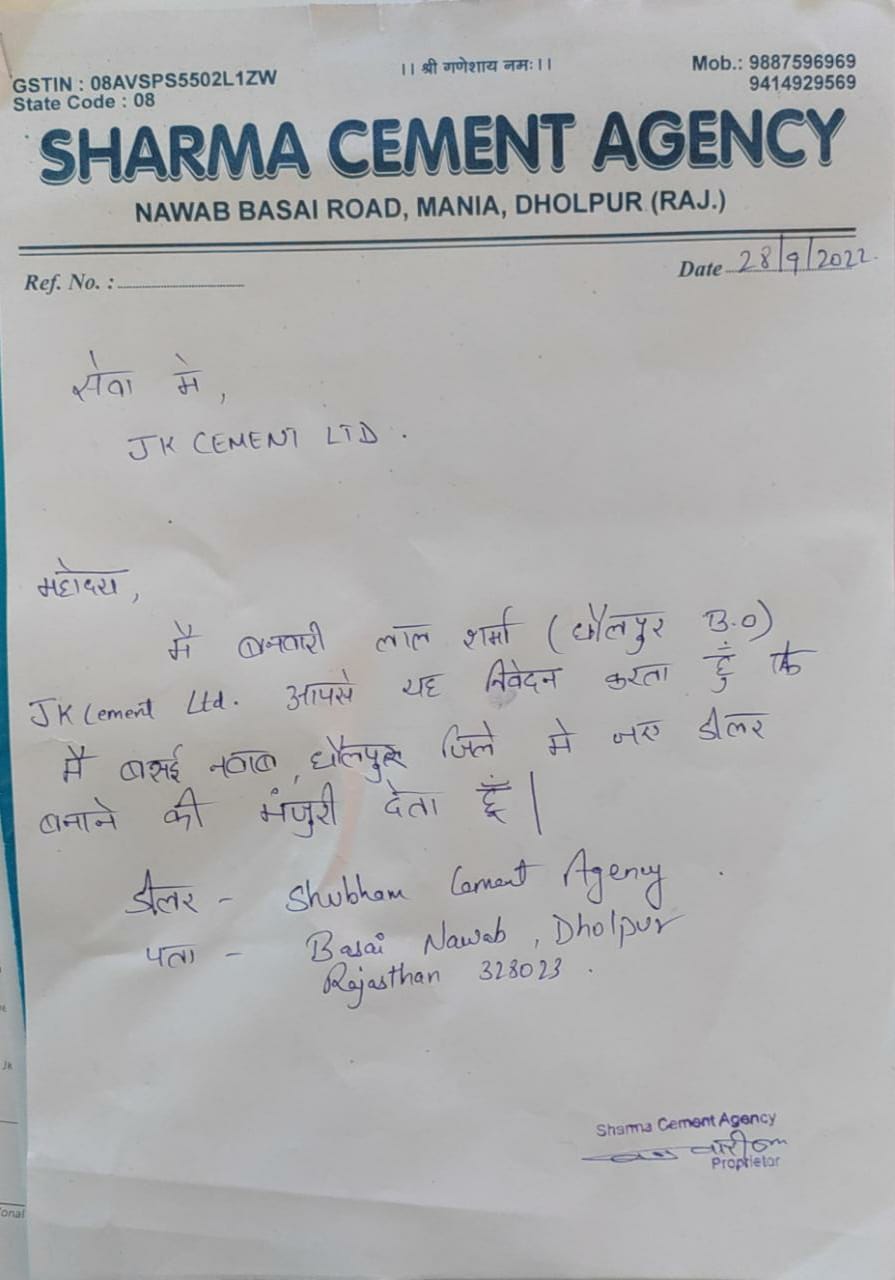 ।। श्री गणेशाय नमः।।
GSTIN : 08AVSPS5502L1ZW
State Code : 08
Mob.: 9887596969
9414929569
SHARMA CEMENT AGENCY
NAWAB BASAI ROAD, MANIA, DHOLPUR (RAJ.)
Ref. No. :
Date 28/9/2022.
सेवा मे,
JK CEMENT LTD.
महोदय,
मै बनवारी लाल शर्मा (धौलपुर B.O)
JK Cement Ltd. आपसे यह निवेदन करता हुँ कि
मै बसई नवाब, धौलपुर जिले मे नए डीलर
बनाने की मंजुरी देता हूँ|
डीलर - Shubham Cement Agency.
पता - Basai Nawab, Dholpur
Rajasthan 328023.
Sharma Cement Agency
Proprietor
Jk
onal